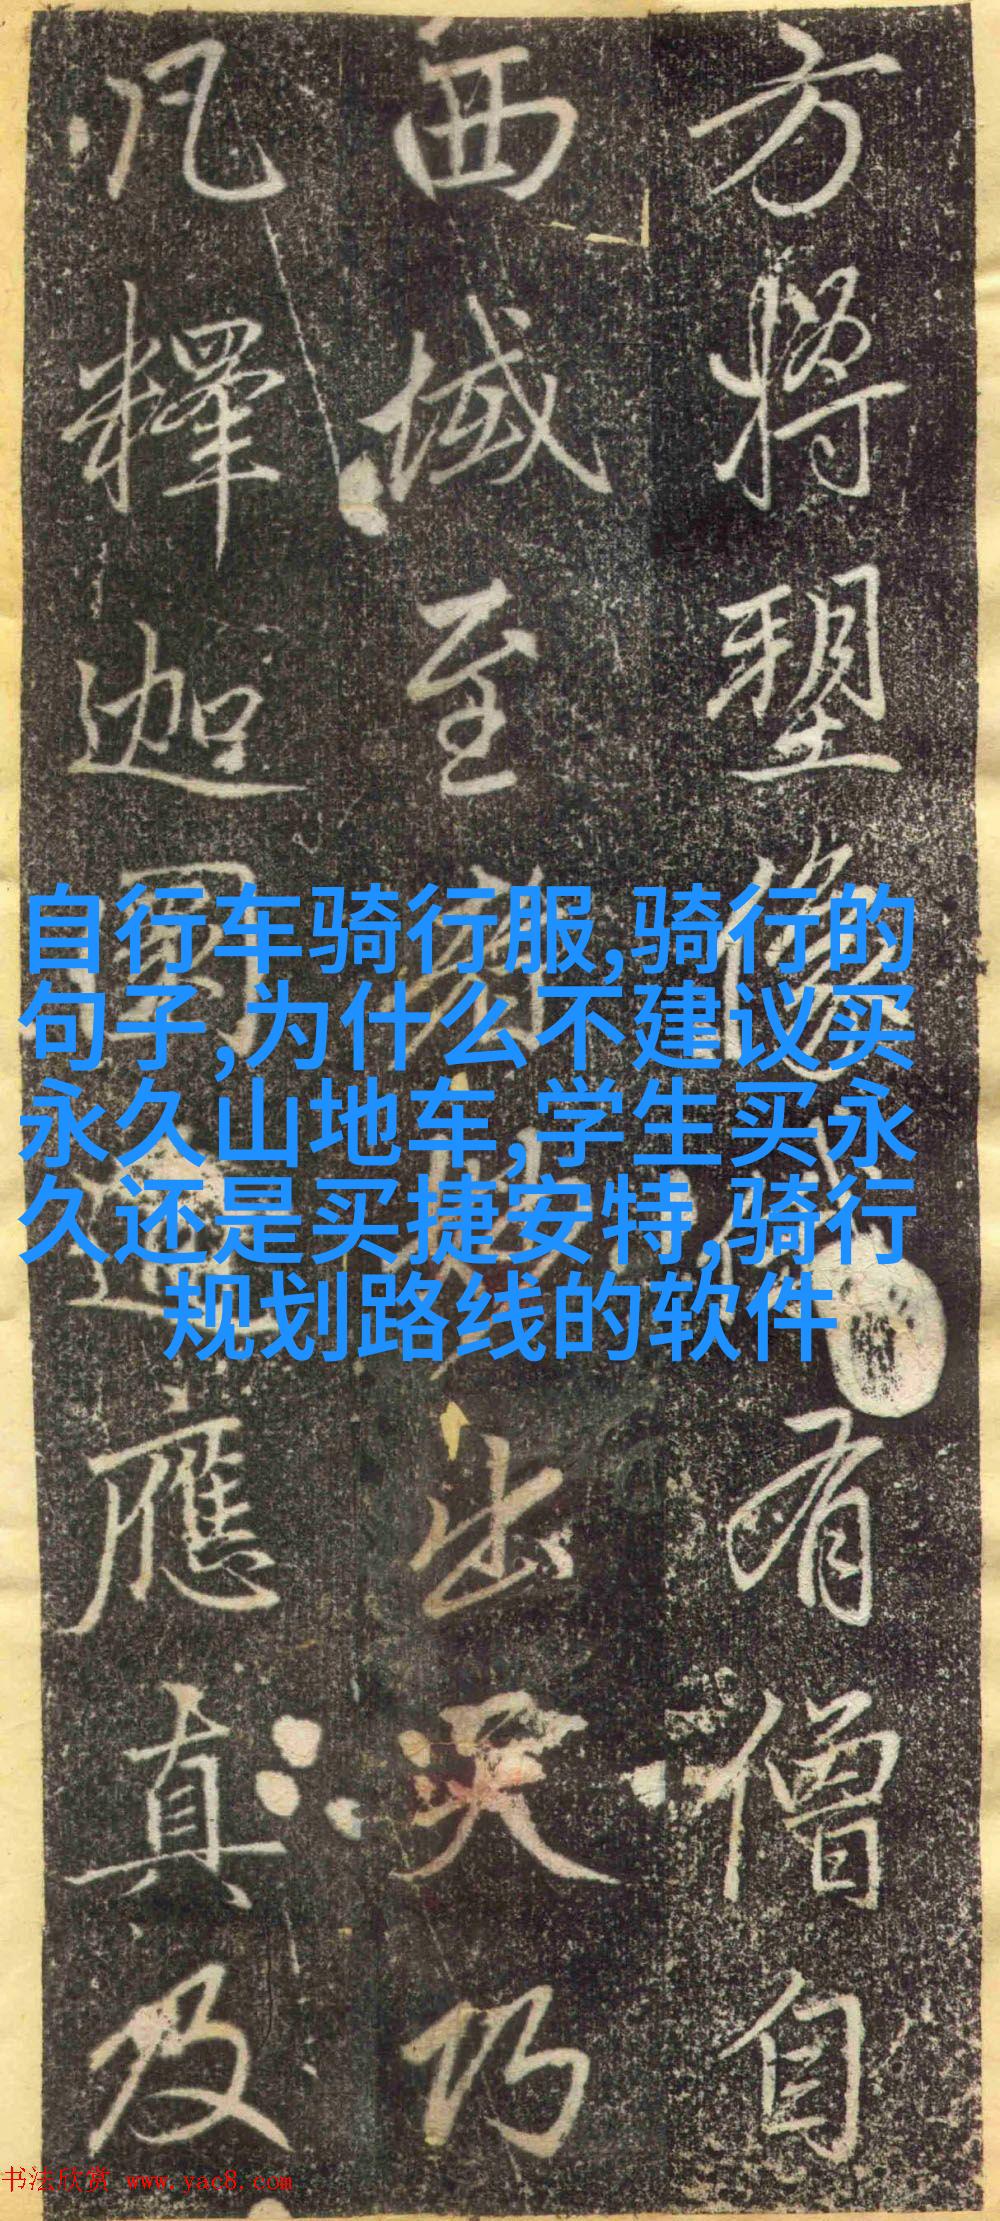 方將塑像有僧自
西域至出天巧
凡釋迦圓通應真及
自行车骑行服,骑行的
句子,为什么不建议买
永久山地车,学生买永
久还是买捷安特,骑行
规划路线的软件
书法欣赏 www.yac8.com